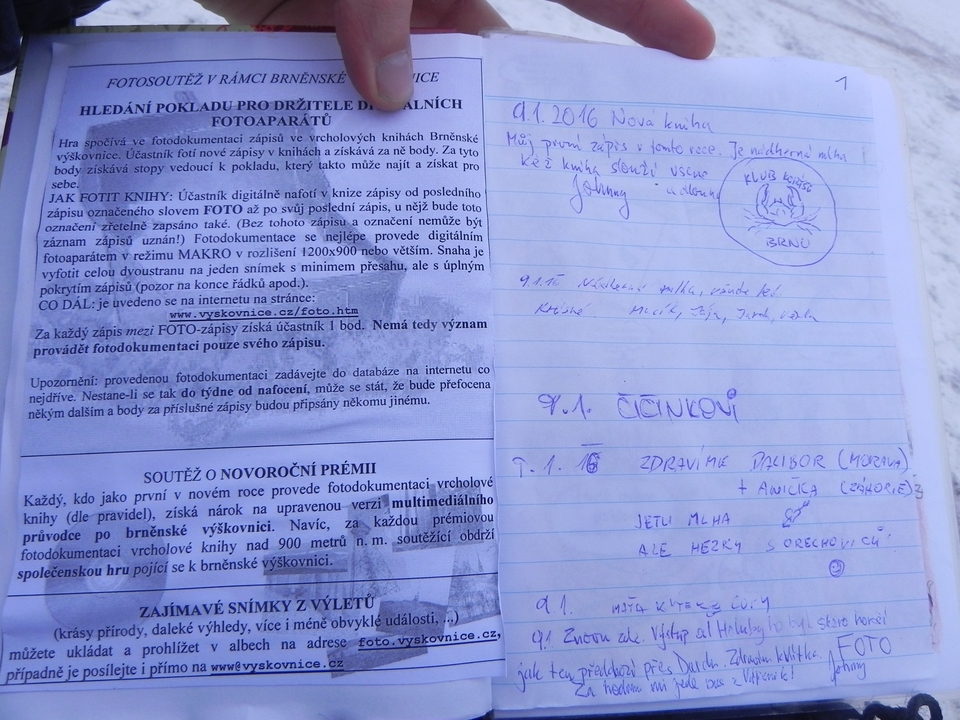 FOTOSOUTĚŽ V RÁMCI BRNĚNSKÉ NICE
HLEDÁNÍ POKLADU PRO DRŽITELE DI ÁLNÍCH
FOTOAPARÁTŮ
Hra spočívá ve fotodokumentaci zápisů ve vrcholových knihách Brněnské
výškovnice. Účastník fotí nové zápisy v knihách a získává za ně body. Za tyto
body získává stopy vedoucí k pokladu, který takto může najít a získat pro
sebe.
JAK FOTIT KNIHY: Účastník digitálně nafotí v knize zápisy od posledního
zápisu označeného slovem FOTO až po svůj poslední zápis, u nějž bude toto
označení zřetelně zapsáno také. (Bez tohoto zápisu a označení nemůže být
záznam zápisů uznán!) Fotodokumentace se nejlépe provede digitálním
fotoaparátem v režimu MAKRO v rozlišení 1200x900 nebo větším. Snaha je
vyfotit celou dvoustranu na jeden snímek s minimem přesahu, ale s úplným
pokrytím zápisů (pozor na konce řádků apod.).
CO DÁL: je uvedeno se na internetu na stránce:
www.vyskovnice.cz/foto.htm
Za každý zápis mezi FOTO-zápisy získá účastník 1 bod. Nemá tedy význam
provádět fotodokumentaci pouze svého zápisu.
Upozornění: provedenou fotodokumentaci zadávejte do databáze na internetu co
nejdříve. Nestane-li se tak do týdne od nafocení, může se stát, že bude přefocena
někým dalším a body za příslušné zápisy budou připsány někomu jinému.
SOUTĚŽ O NOVOROČNÍ PRÉMII
Každý, kdo jako první v novém roce provede fotodokumentaci vrcholové
knihy (dle pravidel), získá nárok na upravenou verzi multimediálního
průvodce po brněnské výškovnici. Navíc, za každou prémiovou
fotodokumentaci vrcholové knihy nad 900 metrů n. m. soutěžící obdrží
společenskou hru pojící se k brněnské výškovnici.
ZAJÍMAVÉ SNÍMKY Z VÝLETŮ
(krásy přírody, daleké výhledy, více i méně obvyklé události, ...)
můžete ukládat a prohlížet v albech na adrese foto.vyskovnice.cz,
případně je posílejte i přímo na www@vyskovnice.cz
1
9.1.2016 Nová kniha
Můj první zápis v tomto roce. Je nádherná mlha
Kéž kniha slouží všem
Johnny a dlouho
KLUB
BRNO
9.1.16 Nádherná mlha, všude led.
9.1. ČIČINKOVI
9.1.16 ZDRAVÍME DALIBOR (MORAVA)
+ ANIČKA (ZÁHORIE)
JETLI MLHA
ALE HEZKY S OŘECHOVICÍ
9.1.
9.1. Znovu zde. Výstup od byl skoro horší
jak ten předchozí přes Zdravím FOTO
Za hodinu mi jede bus z Johnny